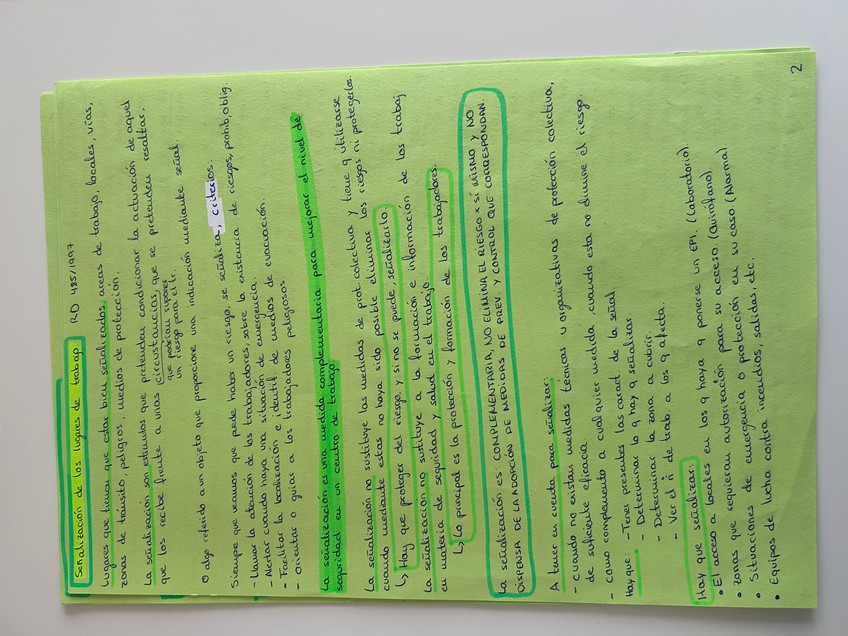 Señalización de los lugares de trabajo RD 485/1997
Lugares que tienen que estar bien señalizados, áreas de trabajo, locales, vías,
zonas de tránsito, peligros, medios de protección.
La señalización son estímulos que pretenden condicionar la actuación de aquel
que los recibe frente a unas circunstancias, que se pretenden resaltar.
que podrían suponer
un riesgo para el tr.
O algo referido a un objeto que proporcione una indicación mediante señal.
Siempre que veamos que puede haber un riesgo, se señaliza, criterios.
- Llamar la atención de los trabajadores sobre la existencia de riesgos, prohib, oblig.
- Alertar cuando haya una situación de emergencia.
- Facilitar la localización e identif. de medios de evacuación.
- Orientar o guiar a los trabajadores peligrosos
La señalización es una medida complementaria para mejorar el nivel de
seguridad en un centro de trabajo.
La señalización no sustituye las medidas de prot. colectiva y tiene q utilizarse
cuando mediante estas no haya sido posible eliminar los riesgos ni protegerlos.
↳ Hay que proteger del riesgo y si no se puede, señalizarlo.
La señalización no sustituye a la formación e información de los trabaj
en materia de seguridad y salud en el trabajo
↳ Lo principal es la protección y formación de los trabajadores.
La señalización es COMPLEMENTARIA, NO ELIMINA EL RIESGO X SÍ MISMO Y NO
DISPENSA DE LA ADOPCIÓN DE MEDIDAS DE PREV. Y CONTROL QUE CORRESPONDAN
A tener en cuenta para señalizar:
- Cuando no existan medidas técnicas u organizativas de protección colectiva,
de suficiente eficacia
- Como complemento a cualquier medida, cuando esta no dismine el riesgo.
Hay que: - Tener presentes las caract de la señal
- Determinar lo q hay q señalizar
- Determinar la zona a cubrir.
- Ver el nº de trab a los q afecta.
Hay que señalizar:
• El acceso a locales en los q haya q ponerse un EPI. (Laboratorio).
• Zonas que requieran autorización para su acceso (Quirófano)
• Situaciones de emergencia o protección en su caso (Alarma)
• Equipos de lucha contra incendios, salidas, etc.
2